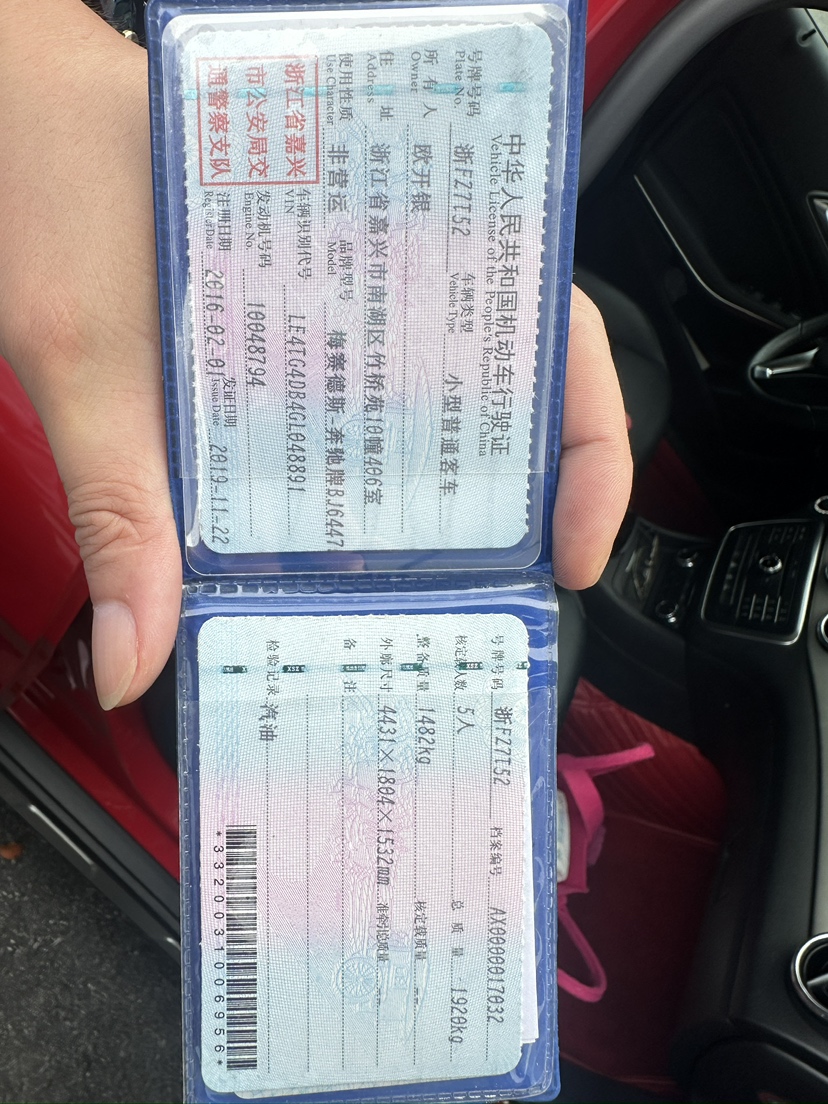 中华人民共和国机动车行驶证
Vehicle License of the People's Republic of China
号牌号码 浙FZ7T52 车辆类型 小型普通客车
Plate No. Vehicle Type
所有人 欧开银
Owner
住址 浙江省嘉兴市南湖区竹桥苑10幢406室
Address
使用性质 非营运 品牌型号 梅赛德斯-奔驰牌BJ6447
Use Character Model
浙江省嘉兴
市公安局交
通警察支队
车辆识别代号 LE4TG4DB4GL048891
VIN
发动机号码 10048794
Engine No.
注册日期 2016-02-01 发证日期 2019-11-22
Register Date Issue Date
号牌号码 浙FZ7T52 档案编号 AX0000017032
核定载人数 5人 总质量 1920kg
整备质量 1482kg 核定载质量 --
外廓尺寸 4431×1804×1532mm 准牵引总质量 --
备注
检验记录 汽油
*3320031006956*